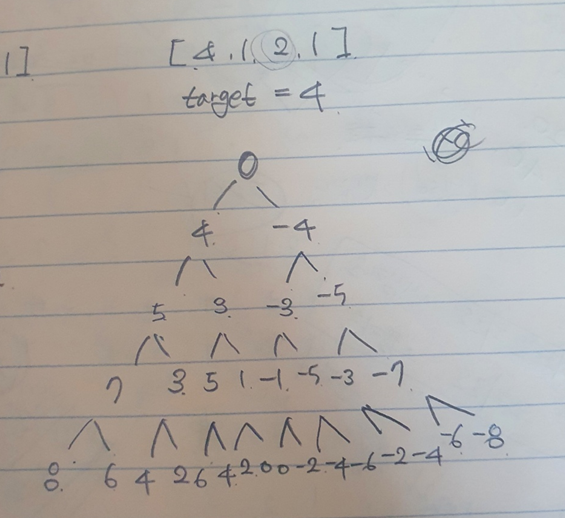 1]
[4, 1, 2, 1]
target = 4
0
4 -4
5 3 -3 -5
7 3 5 1 -1 -5 -3 -7
8 6 4 2 6 4 2 0 0 -2 -4 -6 -2 -4 -6 -8